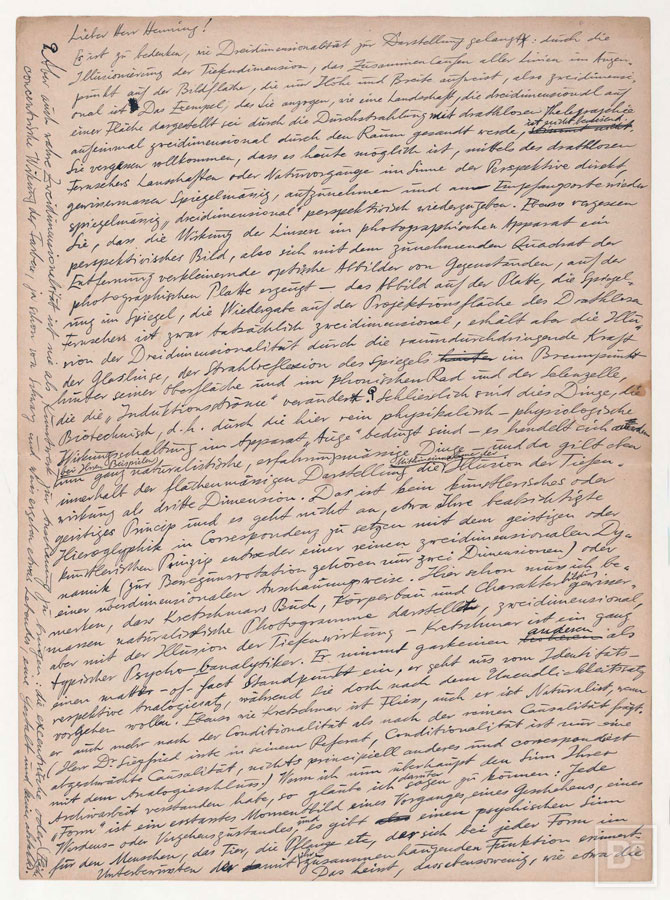 Lieber Herr Henning!
Es ist zu bedenken, wie Dreidimensionalität zur Darstellung gelangt: durch die
Illusionierung der Tiefendimension, das Zusammenlaufen aller Linien im Augen-
punkt auf der Bildfläche, die nur Höhe und Breite aufweist, also zweidimensi-
onal ist. Das Exempel, das Sie anzogen, wie eine Landschaft, die dreidimensional auf
einer Fläche dargestellt sei durch die Durchstrahlung mit drahtloser Thelegraphie
auf einmal zweidimensional durch den Raum gesandt werde, ist nicht
Sie vergessen vollkommen, dass es heute möglich ist, mittels des drahtlosen
Fernsehers Landschaften oder Naturvorgänge im Sinne der Perspektive direkt,
gewissermassen Spiegelmässig, aufzunehmen und am Empfangsorte wieder
spiegelmässig „dreidimensional" perspektivisch wiederzugeben. Ebenso vergessen
Sie, dass die Wirkung der Linsen im photographischen Apparat ein
perspektivisches Bild, also sich mit dem zunehmenden Quadrat der
Entfernung verkleinernde optische Abbilder von Gegenständen, auf der
photographischen Platte erzeugt — das Abbild auf der Platte, die Spiegel-
ung im Spiegel, die Wiedergabe auf der Projektionsfläche des Drahtlosen
Fernsehers ist zwar tatsächlich zweidimensional, erhält aber die Illu-
sion der Dreidimensionalität durch die raumdurchdringende Kraft
der Glaslinse, der Strahlreflexion des Spiegels im Brennpunkt
hinter seiner Oberfläche und im phonischen Rad und der Selenzelle,
die die „Induktionsströme" verändert. Schliesslich sind dies Dinge, die
Biotechnisch, d. h. durch die hier rein physikalisch-physiologische
Wirkungsschaltung im Apparat, Auge bedingt sind — es handelt sich
(bei Ihren Beispielen)
um ganz naturalistische, erfahrungsmässige Dinge — und da gilt eben
innerhalb der flächenmässigen Darstellung die Illusion der Tiefen-
wirkung als dritte Dimension. Das ist kein künstlerisches oder
geistiges Princip und es geht nicht an, etwa Ihre beabsichtigte
Hieroglyphik in Correspondenz zu setzen mit dem geistigen oder
künstlerischen Prinzip entweder einer reinen zweidimensionalen Dy-
namik (zur Bewegungsrotation gehören nur zwei Dimensionen) oder
einer überdimensionalen Anschauungsweise. Hier schon muss ich be-
merken, dass Kretschmars Buch, Körperbau und Charakter gewisser-
massen naturalistische Photogramme darstellt, zweidimensional,
aber mit der Illusion der Tiefenwirkung — Kretschmar ist ein ganz
typischer Psycho-banalytiker. Er nimmt garkeinen anderen als
einen matter-of-fact Standpunkt ein, er geht aus vom Identitäts-
respektive Analogiesatz, während Sie doch nach dem Unendlichkeitssatz
vorgehen wollen. Ebenso wie Kretschmar ist Fliess, auch er ist Naturalist, wenn
er auch mehr nach der Conditionalität als nach der reinen Causalität frägt.
(Herr Dr. Siegfried irrte in seinem Referat, Conditionalität ist nur eine
abgeschwächte Causalität, nichts principiell anderes und correspondiert
mit dem Analogieschluss.) Wenn ich nun überhaupt den Sinn Ihrer
verstanden habe, so glaube ich, damit sagen zu können: Jede
„Form" ist ein erstarrtes Momentbild eines Vorganges, eines Geschehens, eines
Werdens- oder Vergehenszustandes, und es gibt einen psychischen Sinn
für den Menschen, das Tier, die Pflanze etc, der sich bei jeder Form im
Unterbewussten der damit zusammenhängenden Funktion erinnert.
Das heisst, dass ebensowenig, wie etwa die
Aber auch reine Zweidimensionalität ist nie als Kunstwerk zur Anschauung zu bringen: die excentrische oder
concentrische Wirkung der Farben, ja schon von Schwarz und Weiss ergeben etwas Lebendes, eine Gestalt und keine